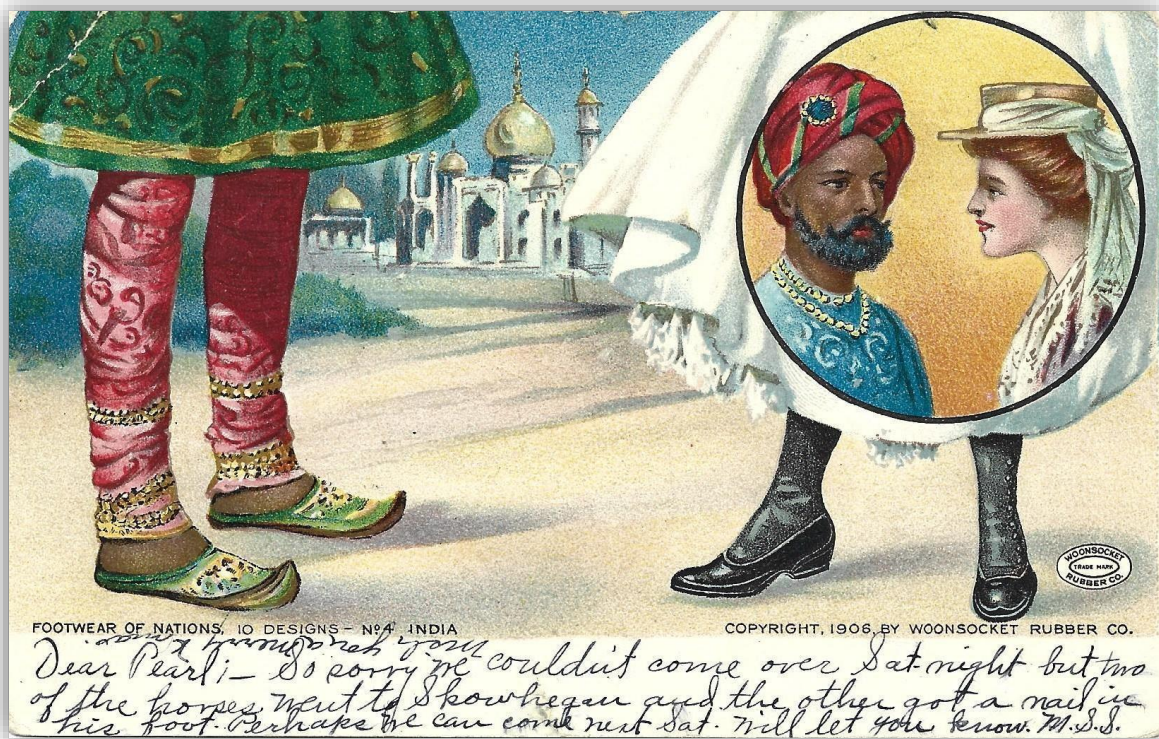 WOONSOCKET
TRADE MARK
RUBBER CO.
FOOTWEAR OF NATIONS, 10 DESIGNS – No 4 INDIA
COPYRIGHT, 1906, BY WOONSOCKET RUBBER CO.
Dear Pearl;– So sorry we couldn't come over Sat. night but two
of the horses went to Skowhegan and the other got a nail in
his foot. Perhaps we can come next Sat. Will let you know. M.S.S.